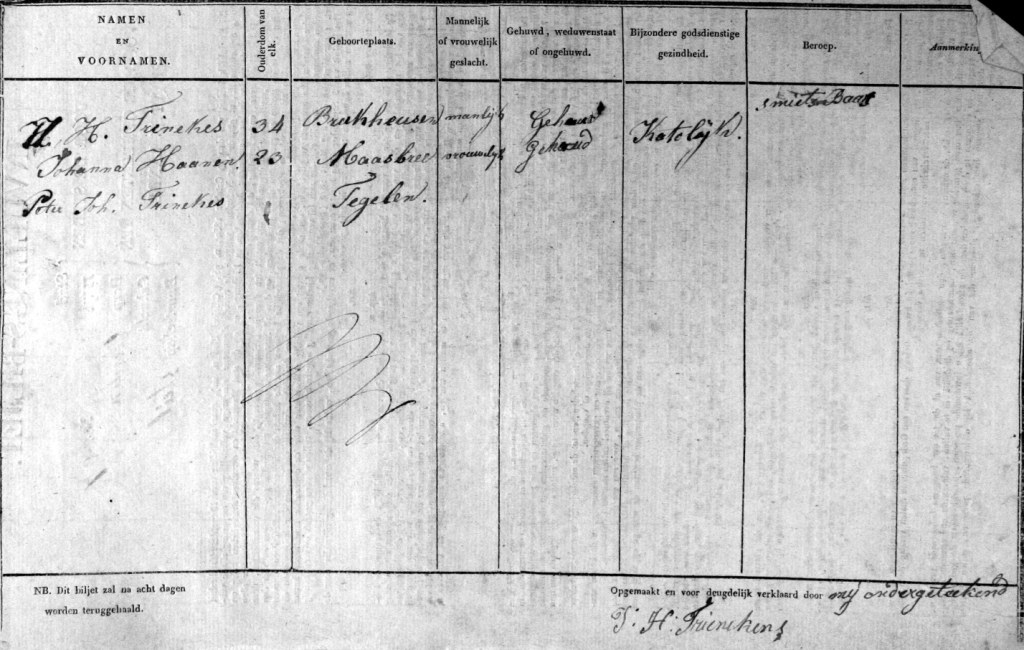 NAMEN EN VOORNAMEN. Ouderdom van elk. Geboorteplaats. Mannelijk of vrouwelijk geslacht. Gehuwd, weduwenstaat of ongehuwd. Bijzondere godsdienstige gezindheid. Beroep. Aanmerkin
H. Trinekes 34 Broekheusen manlijk Katolijk.
Johanna Haanen. 23 Maasbree vrouwelijk Gehoud
Peter Joh. Trinekes Tegelen.
NB. Dit biljet zal na acht dagen worden teruggehaald.
Opgemaakt en voor deugdelijk verklaard door mij ondergeteekend
J: H: Trienekens